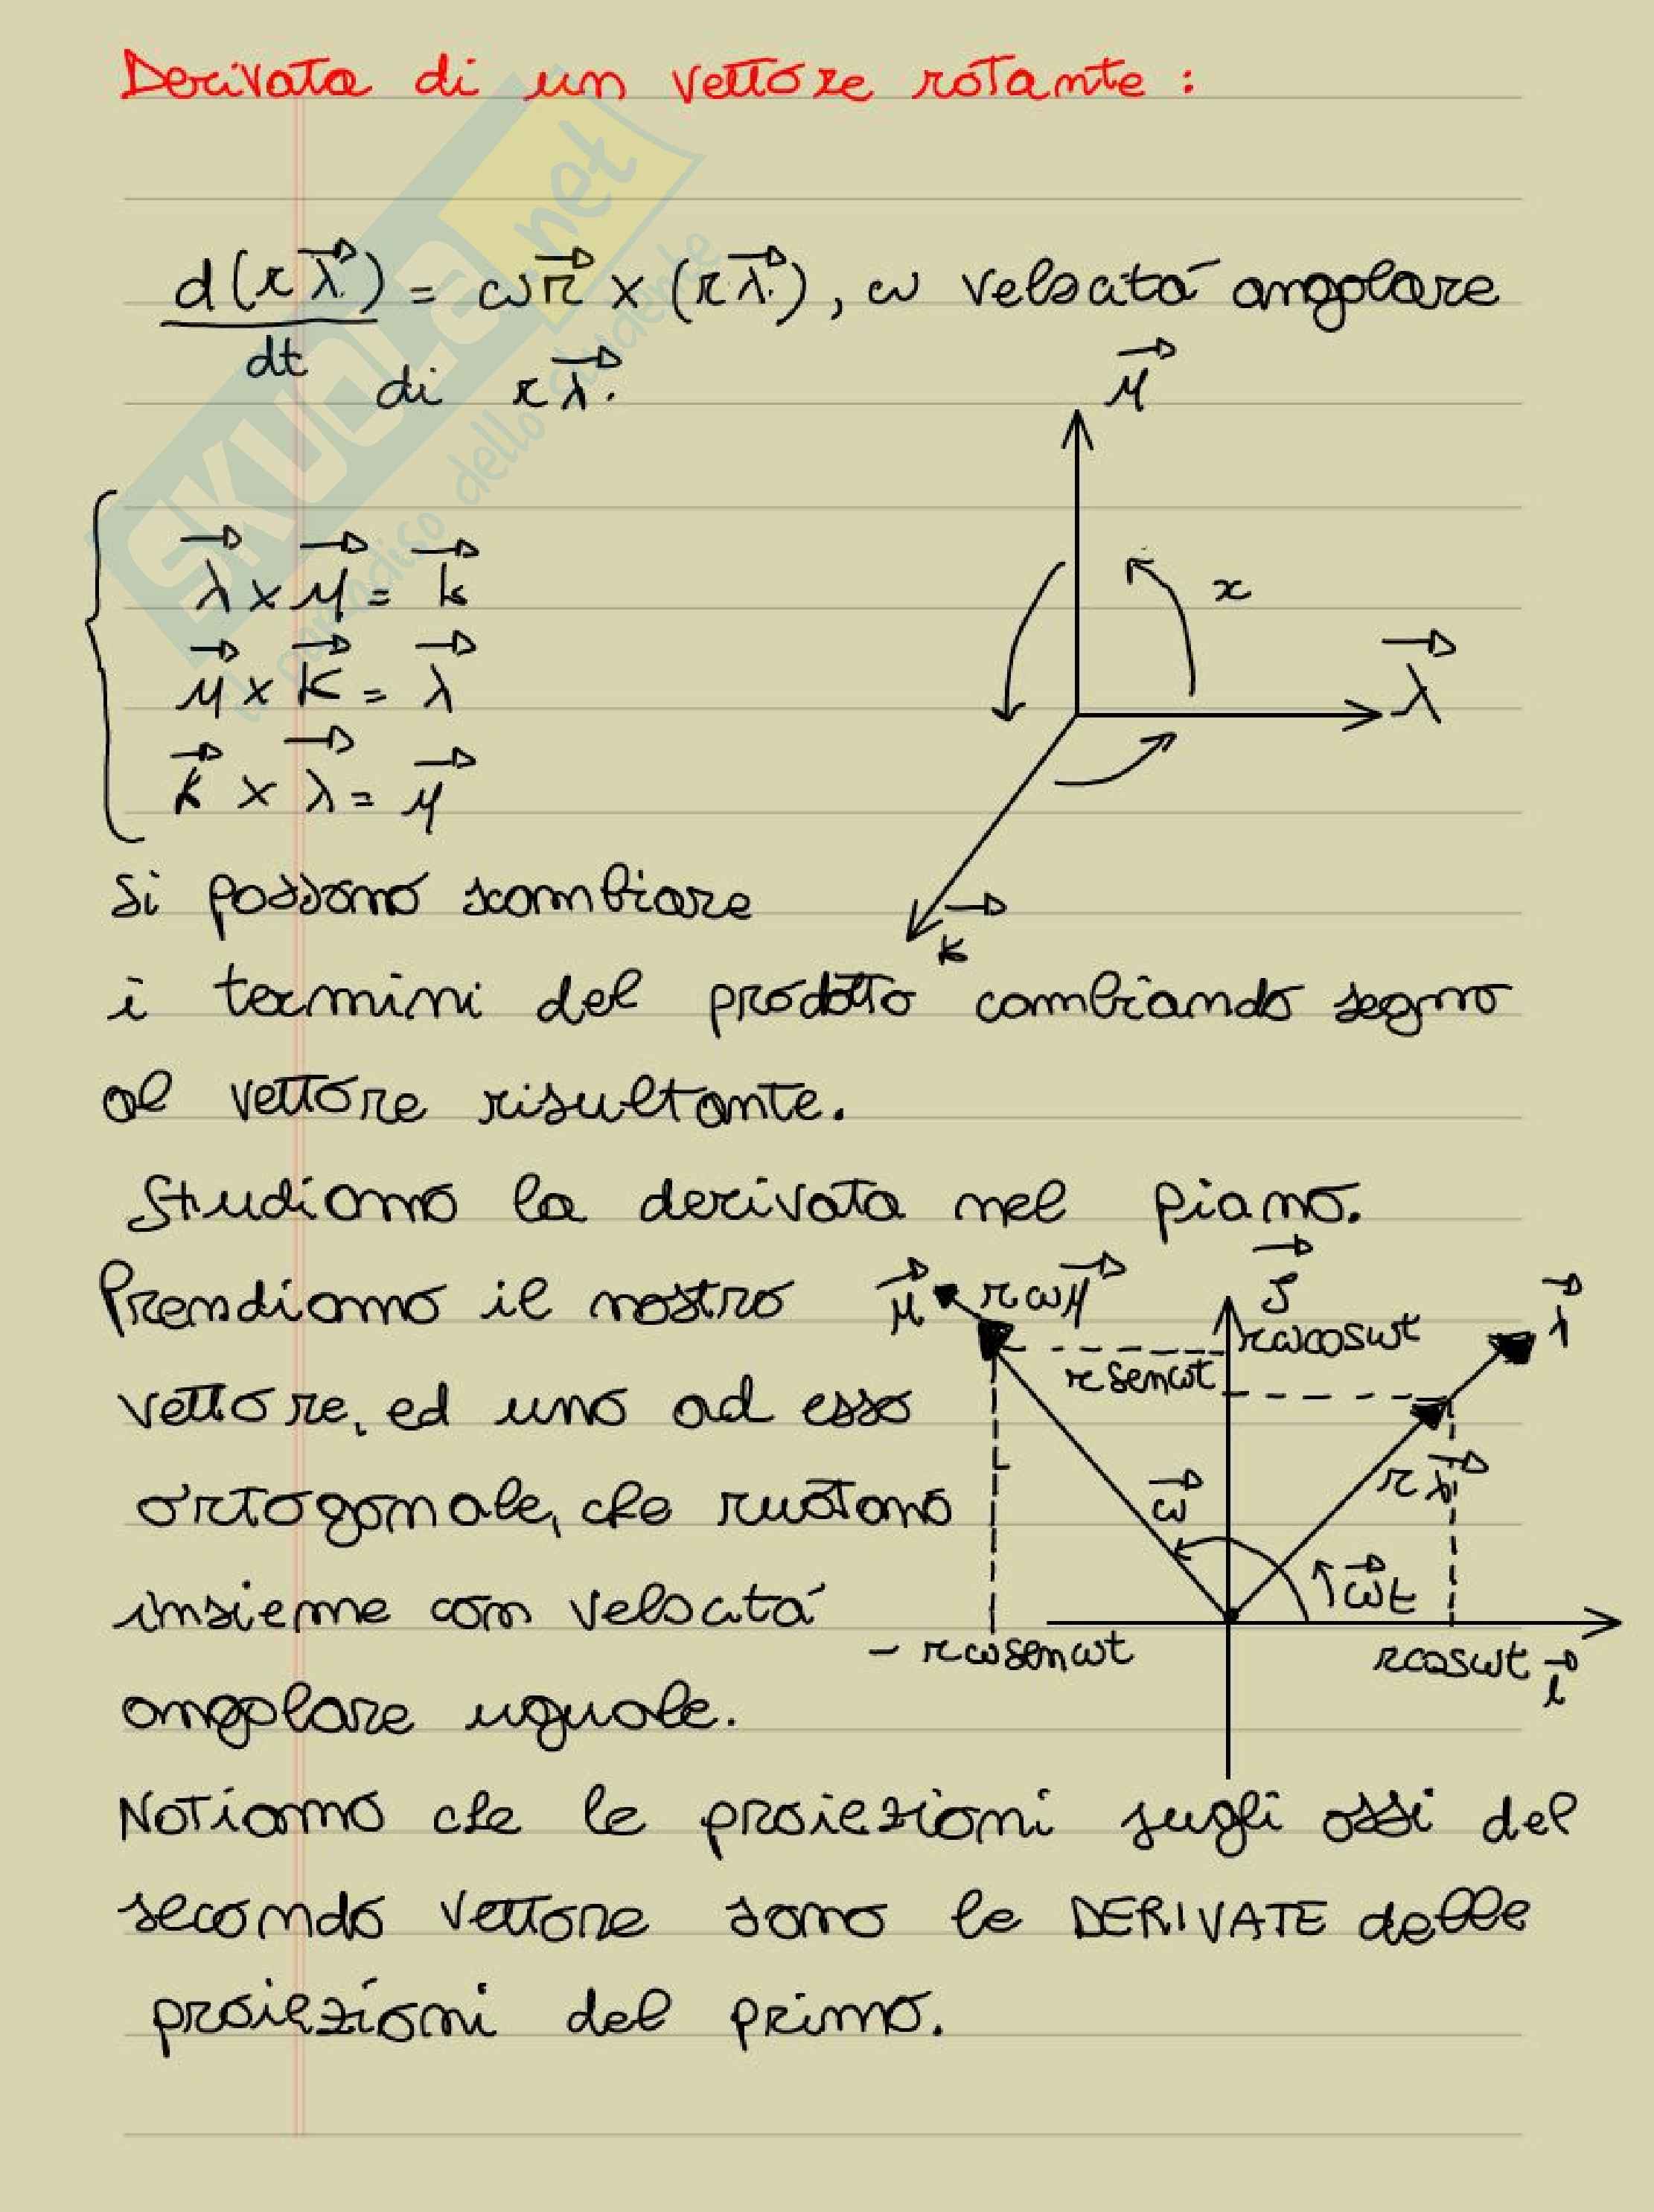 Derivata di un vettore rotante :
d(r λ⃗)/dt = ω n⃗ × (r λ⃗), ω velocità angolare
di r λ⃗.
μ⃗
λ⃗ × μ⃗ = k⃗
x
μ⃗ × k⃗ = λ⃗
λ⃗
k⃗ × λ⃗ = μ⃗
k⃗
Si possono scambiare
i termini del prodotto cambiando segno
al vettore risultante.
Studiamo la derivata nel piano.
Prendiamo il nostro
vettore, ed uno ad esso
ortogonale, che ruotano
insieme con velocità
angolare uguale.
μ⃗ rωμ⃗ J⃗ λ⃗
rωcosωt
rsenωt
r λ⃗
ω⃗
ω⃗t
- rωsenωt rcosωt i⃗
Notiamo che le proiezioni sugli assi del
secondo vettore sono le DERIVATE delle
proiezioni del primo.
SKUOLA.net
il paradiso dello studente